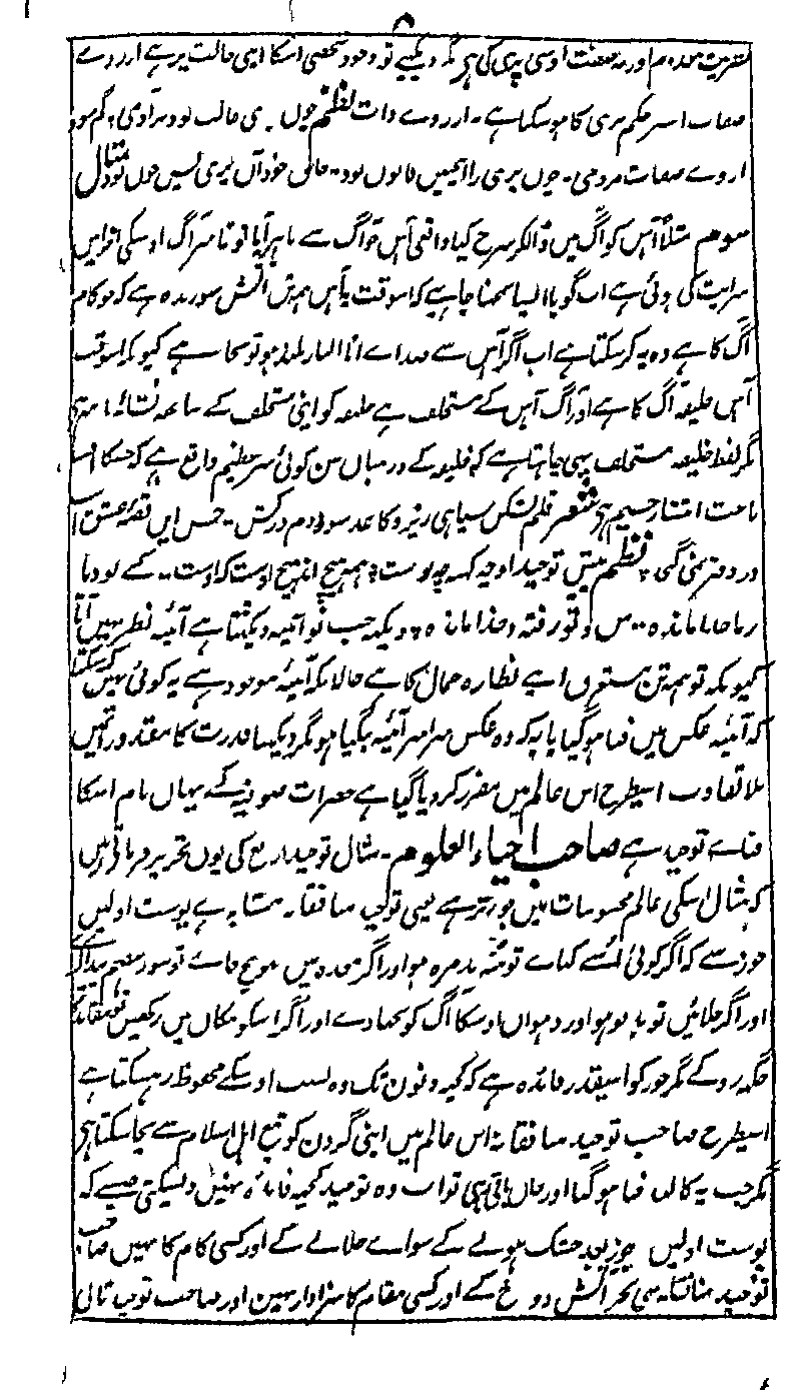 ۸
اور یہ صفت اوسی پری کی ہی مگر دیکھیے تو وجود شخصی اسکا اسی حالت پر ہے از روے
صفات اسپر حکم پری کا ہوسکتا ہے۔ از روے ذات نظم چوں پری غالب بود بر آدمی ؛ گم شود
از وے صفات مردمی۔ چوں پری را اینچنیں قانوں بود۔ خالق خود آں پری بس چوں بود مثال
سوم مثلاً آہن کو آگ میں ڈالکر سرخ کیا واقعی آہن جو آگ سے باہر آیا تو تاثیر آگ اوسکی اجزا میں
سرایت کی ہوئی ہے اب گویا ایسا سمجھنا چاہیے کہ اسوقت یہ آہن ہمیں آتش سوزندہ ہے کہ جو کام
آگ کا ہے وہ یہ کر سکتا ہے اب اگر آہن سے صداے انا النار بلند ہو تو بجا ہے کیونکہ اسوقت
آہن خلیفہ آگ کا ہے اور آگ آہن کے مستخلف ہے خلیفہ کو اپنی مستخلف کے ساتھ
مگر لفظ خلیفہ مستخلف یہی چاہتا ہے کہ خلیفہ کے درمیان میں کوئی سر عظیم واقع ہے کہ جسکا
باعث انتشار جسیم ہی شعر قلم بشکن سیاہی ریز و کاغذ سوز و دم درکش۔ حسن ایں قصۂ عشق است
در دفتر نمی گنجد نظم توحید او چہ کہنہ چہ نوست ؛ ہمہ ہیچ اند ہیچ اوست کہ اوست۔ کے بود ما
ز ما جدا ماندہ ۔۔ من و تو رفتہ و خدا ماندہ ؛ دیکھ جب تو آئینہ دیکھتا ہے آئینہ نظر نہیں آتا
کیونکہ تو ہمہ تن اپنے نظارہ جمال کا ہے حالانکہ آئینہ موجود ہے یہ کوئی نہیں کہہ سکتا
کہ آئینہ عکس میں فنا ہوگیا یا یہ کہ وہ عکس سراسر آئینہ بنگیا ہو مگر دیکھنا قدرت کا مقدور میں
بلا تفاوت اسیطرح اس عالم میں مقرر کر دیا گیا ہے حضرات صوفیہ کے یہاں نام اسکا
فناے توحید ہے صاحب احیاء العلوم۔ مثال توحید اربع کی یوں تحریر فرماتی ہیں
کہ مثال اسکی عالم محسوسات میں جوز تر ہے یعنی توحید منافقانہ مشابہ ہے پوست اولیں
جوز سے کہ اگر کوئی اُسے کھاے تو منہ بدمزہ ہو اور اگر معدہ میں پہونچ جاے تو سوء ہضم پیدا کرے
اور اگر جلائیں تو بدبو ہو اور دھواں اوسکا آگ کو بجھادے اور اگر اسکو مکاں میں رکھیں تو
جگہ روکے مگر جوز کو اسیقدر فائدہ ہے کہ کچھ دنوں تک وہ بسبب اوسکے محفوظ رہسکتا ہے
اسیطرح صاحب توحید منافقانہ اس عالم میں اپنی گردن کو تیغ اہل اسلام سے بچا سکتا ہی
مگر جب یہ کالبد فنا ہوگیا اور جاں باقی رہی تو اب وہ توحید کچھ فائدہ نہیں دیسکتی جیسے کہ
پوست اولیں جوز بعد خشک ہونے کے سواے جلانے کے اور کسی کام کا نہیں صاحب
توحید منافقانہ بھی بجز آتش دوزخ کے اور کسی مقام کا سزاوار نہیں اور صاحب توحید ثانی